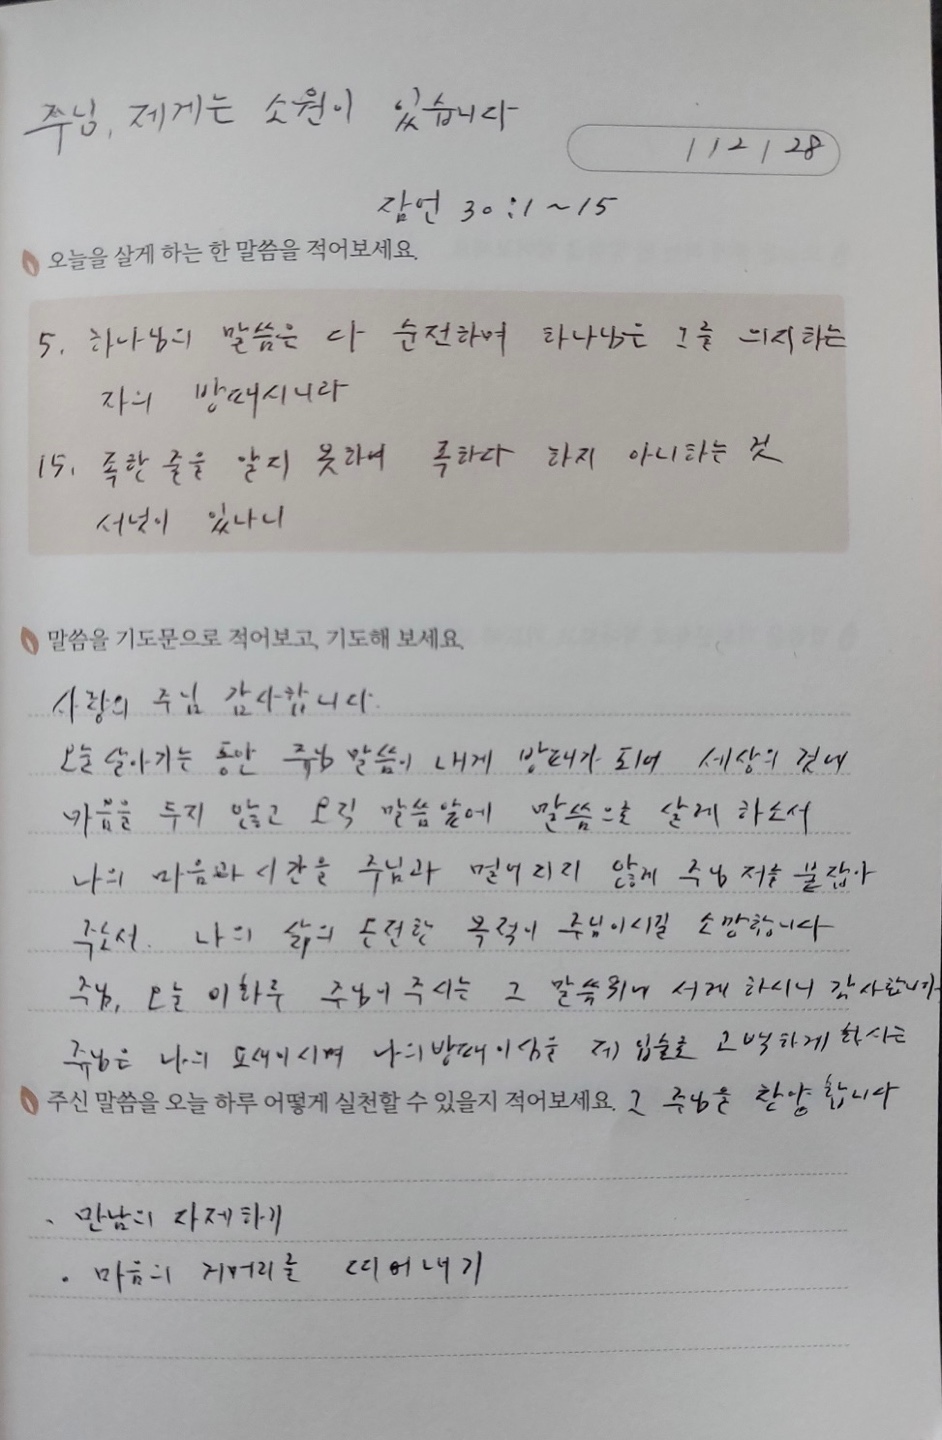 주님, 제게는 소원이 있습니다
112128
잠언 30:1~15
오늘을 살게 하는 한 말씀을 적어보세요.
5. 하나님의 말씀은 다 순전하며 하나님은 그를 의지하는
자의 방패시니라
15. 족한 줄을 알지 못하여 족하다 하지 아니하는 것
서넛이 있나니
말씀을 기도문으로 적어보고, 기도해 보세요.
사랑의 주님 감사합니다.
오늘 살아가는 동안 주님 말씀이 내게 방패가 되어 세상의 것에
마음을 두지 않고 오직 말씀앞에 말씀으로 살게 하소서
나의 마음과 시간을 주님과 멀어지지 않게 주님 저를 붙잡아
주소서. 나의 삶의 온전한 목적이 주님이시길 소망합니다
주님, 오늘 이하루 주님이 주시는 그 말씀위에 서게 하시니 감사합니다
주님은 나의 요새이시며 나의방패이심을 제 입술로 고백하게 하시는
주신 말씀을 오늘 하루 어떻게 실천할 수 있을지 적어보세요. 그 주님을 찬양합니다
· 만남의 자제하기
· 마음의 거머리를 떼어내기